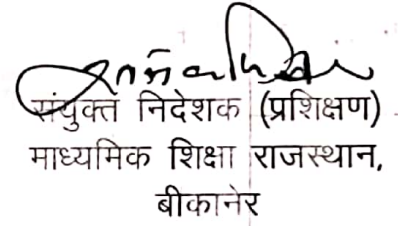 संयुक्त निदेशक (प्रशिक्षण)
माध्यमिक शिक्षा राजस्थान,
बीकानेर